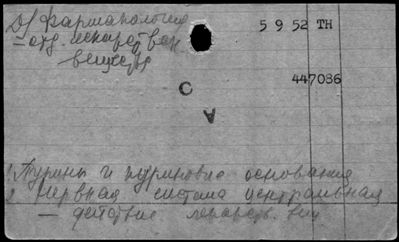 Д) Фармакология
5 9 52 ТН
— отд. лекарствен.
веществ
447086
С
А
1 Пурины и пуриновые основания
2 Нервная система центральная
— действие лекарств. вещ